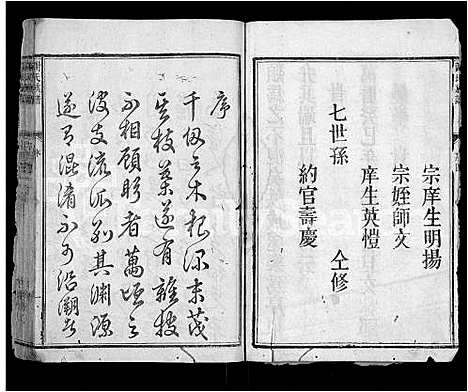 宗庠生明揚
宗姪師文
庠生英愷
七世孫 仝修
約官壽慶
序
千仞之木根深末茂
其枝葉遂有離披
不相顧盻者萬頃之
波支流派别其淵源
遂有混淆不可沿溯者